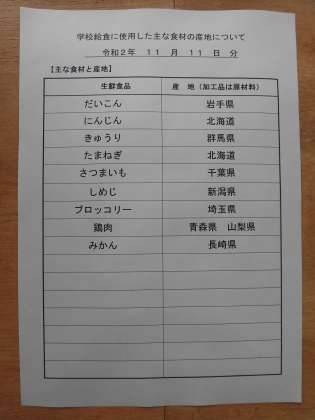 学校給食に使用した主な食材の産地について
令和2年 11 月 11 日 分
【主な食材と産地】
生鮮食品 産 地（加工品は原材料）
だいこん 岩手県
にんじん 北海道
きゅうり 群馬県
たまねぎ 北海道
さつまいも 千葉県
しめじ 新潟県
ブロッコリー 埼玉県
鶏肉 青森県 山梨県
みかん 長崎県